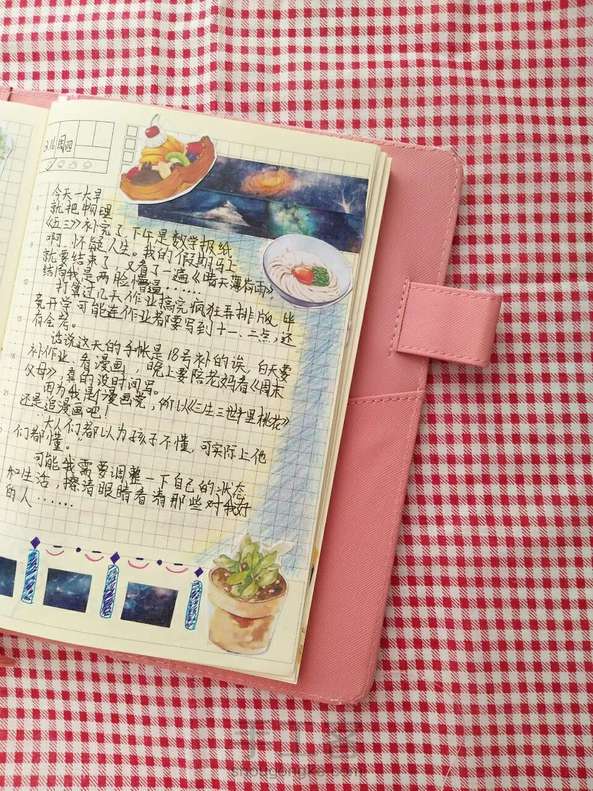 3.16 周四
今天一大早
就把物理
《五三》补完了下午是数学报纸
啊,怀疑人生。我的假期马上
就要结束了,又看了一遍《晴天薄荷雨》
结局我是两脸懵逼……
打算过几天作业搞完疯狂再排版,毕
竟开学可能连作业都要写到十一、二点,还
有金考。
话说这天的手帐是18号补的诶,白天要
补作业,看漫画,晚上要陪老妈看《周末
父母》,真的没时间写。
因为我是个漫画党,所以《三生三世十里桃花》
还是追漫画吧!
大人们都认为孩子不懂,可实际上他
们都懂。
可能我需要调整一下自己的状态
和生活,擦清眼睛看清那些对我好
的人……
手工客
shougongke.com